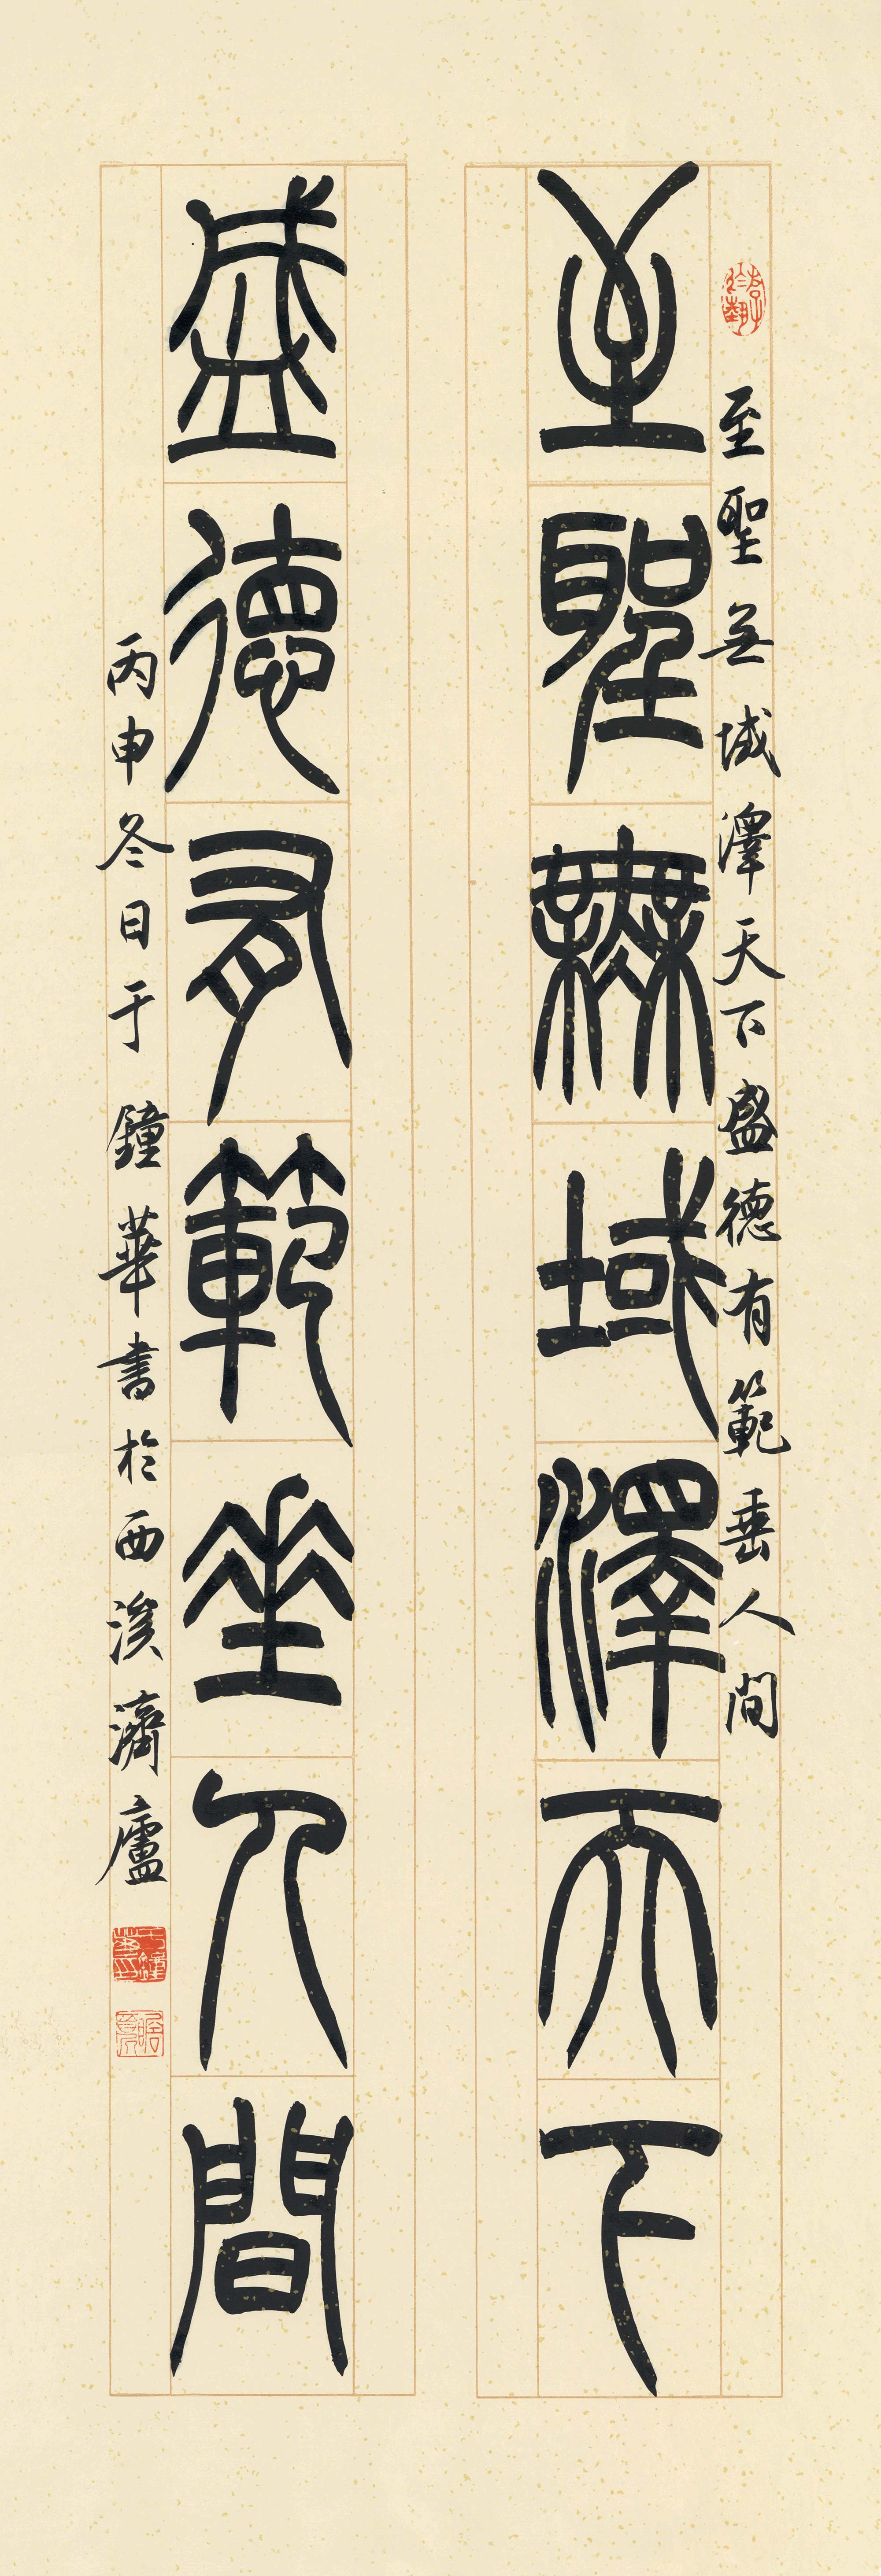 至聖無域澤天下盛德有範垂人間
至聖無域澤天下
盛德有範垂人間
丙申冬日于鐘華書於西溪濟廬